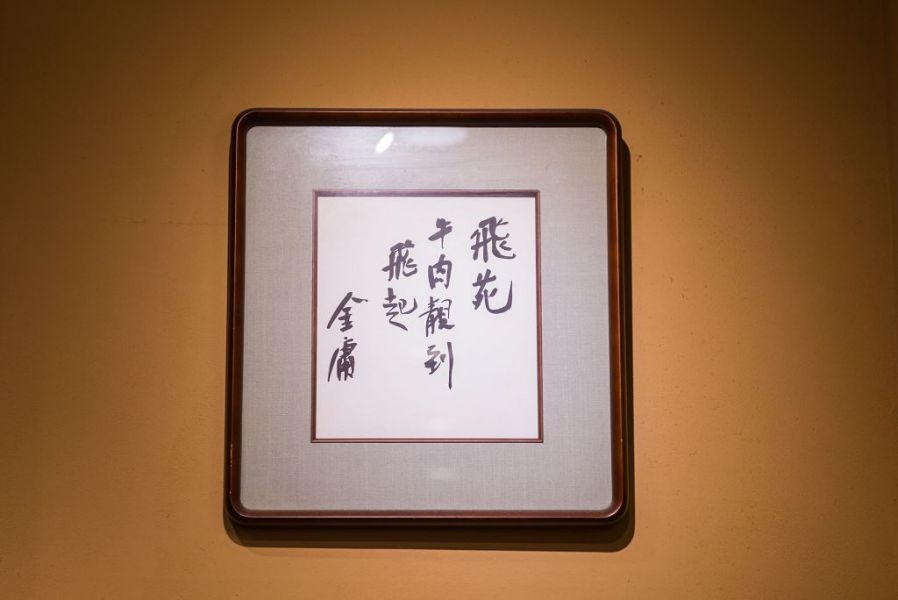 飛苑
牛肉靚到
飛起
金庸